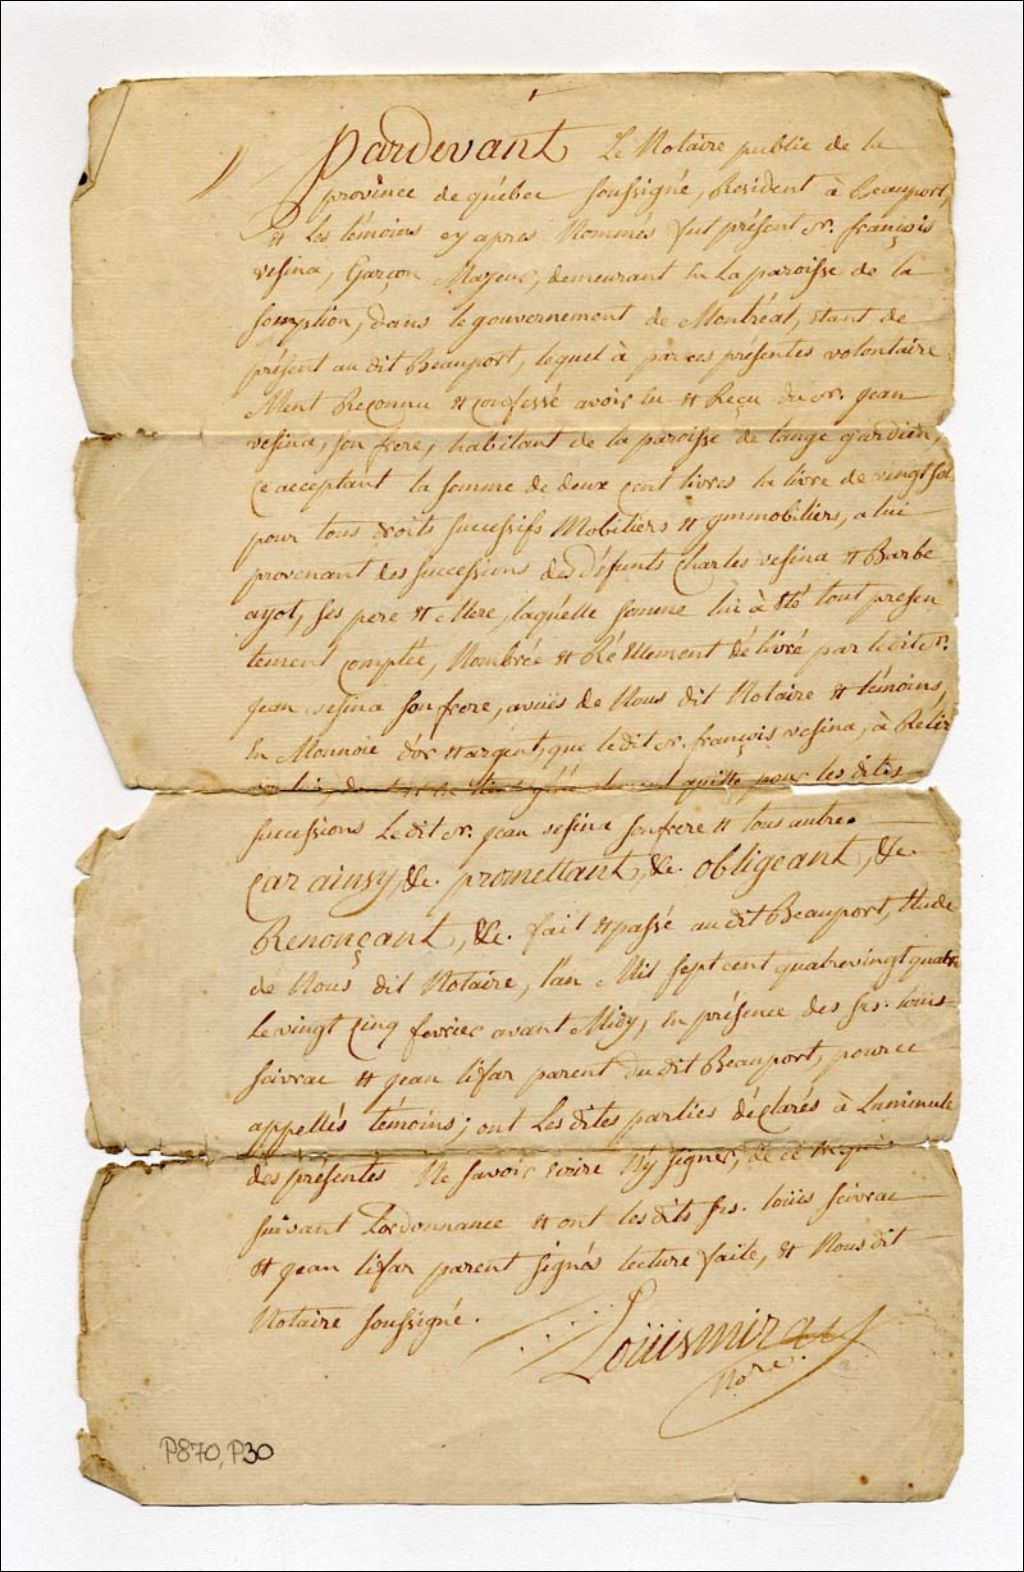 Pardevant Le Notaire public de la
province de québec soussigné, Resident à Beauport,
et Les témoins cy apres Nommés fut présent sr. françois
vesina, Garçon Majeur, demeurant En La paroisse de la
somption, dans le gouvernement de Montréal, étant de
présent au dit Beauport, lequel à par ces présentes volontaire
Ment Reconnu et confessé avoir Eu et Reçu du sr. jean
vesina, son frere, habitant de la paroisse de lange gardien,
ce acceptant la somme de deux cent livres la livre de vingt sol
pour tous droits successifs Mobiliers et ymmobiliers, a lui
provenant des successions des Défunts Charles vesina et Barbe
ayot, ses pere et Mere, laquélle somme lui à été tout presen
tement comptée, Nombrée et Réellement délivré par ledit sr.
jean vesina son frere, avüës de Nous dit Notaire et témoins,
En Monnoie d'or et argent, que ledit sr. françois vesina, à Retiré
quitte pour les dites
successions Ledit sr. jean vesina son frere et tous autres
Car ainsy, &c. promettant, &c. obligeant, &c.
Renonçant, &c. fait et passé au dit Beauport, Etude
de Nous dit Notaire, l'an Mil sept cent quatrevingt quatre
Le vingt Cinq fevrier avant Midy, en présence des srs. loüis
seivrac et jean lifar parent du dit Beauport, pour ce
appellés témoins; ont Les dites parties déclarés à La minute
des presentes Ne savoir ecrire Ny signer, de ce Requis
suivant Lordonnance et ont les dits srs. loüis seivrac
et jean lifar parent signés lecture faite, et Nous dit
Notaire soussigné.
Loüis miray
Nore.
P870, P30